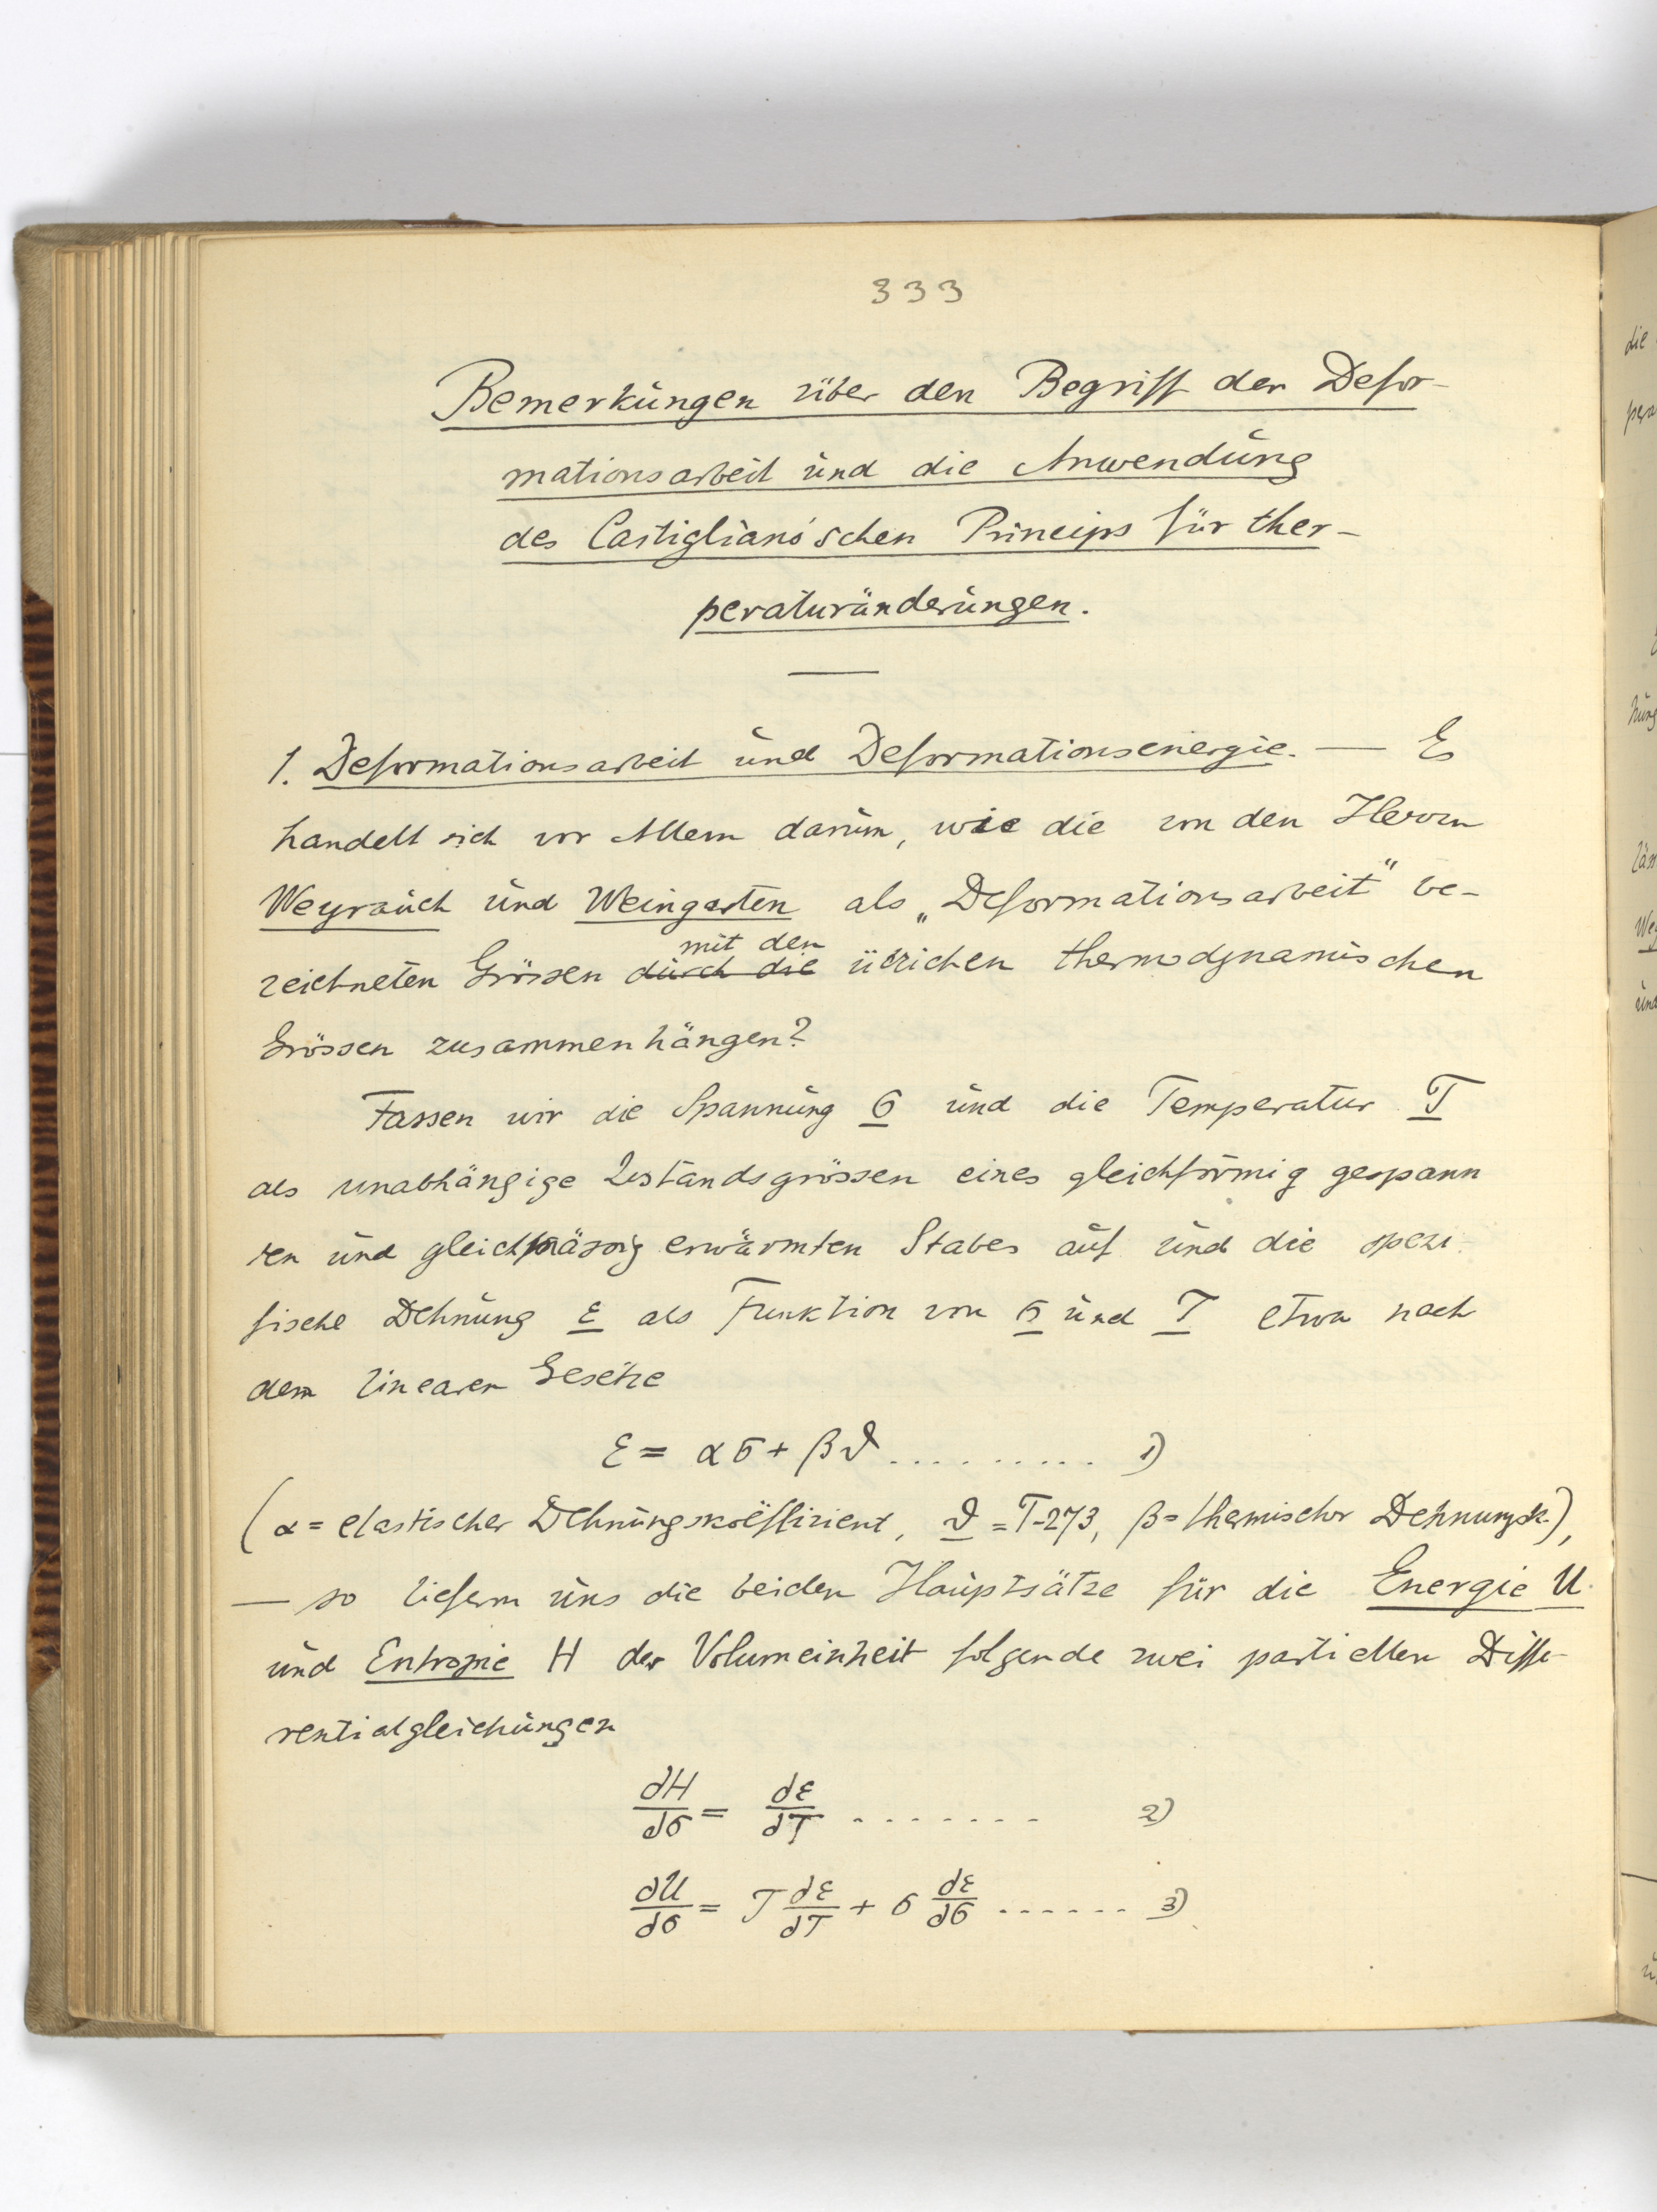 333
Bemerkungen über den Begriff der Defor-
mationsarbeit und die Anwendung
des Castigliano'schen Princips für ther-
peraturänderungen.
1. Deformationsarbeit und Deformationsenergie. — Es
handelt sich vor Allem darum, wie die von den Herren
Weyrauch und Weingarten als „Deformationsarbeit" be-
mit den
zeichneten Grössen durch die üblichen thermodynamischen
Grössen zusammenhängen?
Fassen wir die Spannung σ und die Temperatur T
als unabhängige Zustandsgrössen eines gleichförmig gespann
ten und gleichmässig erwärmten Stabes auf und die spezi-
fische Dehnung ε als Funktion von σ und T etwa nach
dem linearen Gesetze
ε = ασ + βϑ .......... 1)
(α = elastischer Dehnungskoëffizient, ϑ = T-273, β = thermischer Dehnungsk.),
— so liefern uns die beiden Hauptsätze für die Energie U
und Entropie H der Volumeinheit folgende zwei partiellen Diffe-
rentialgleichungen
∂H/∂σ = ∂ε/∂T ....... 2)
∂U/∂σ = T ∂ε/∂T + σ ∂ε/∂σ ...... 3)